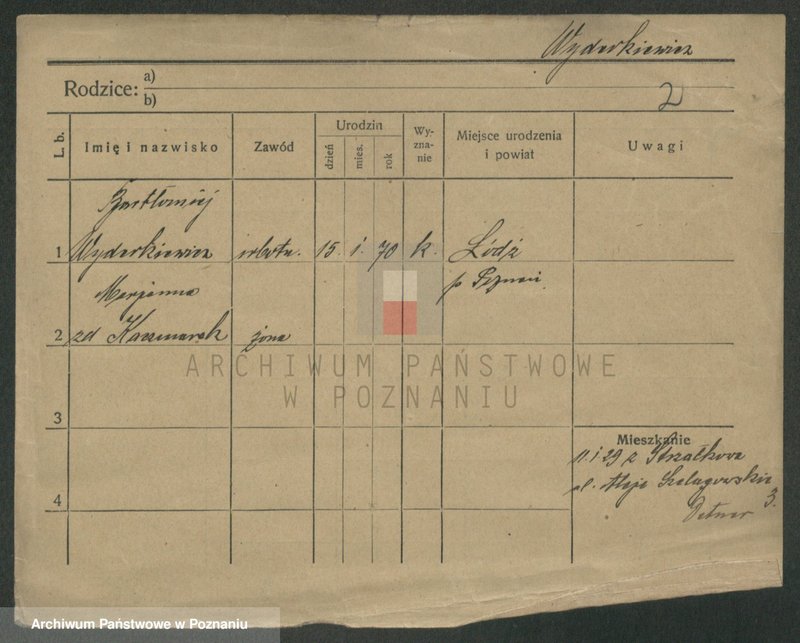 Wyderkiewicz
Rodzice: a)
b)
2
L. b. Imię i nazwisko Zawód Urodzin dzień mies. rok Wy-zna-nie Miejsce urodzenia i powiat Uwagi
Bartłomiej
1 Wyderkiewicz robotn. 15. 1. 70 k. Łódź
Marjanna p. Poznań
2 zd Kaczmarek żona
ARCHIWUM PAŃSTWOWE
W POZNANIU
3
Mieszkanie
11.1 29 z Strzałkowa
ul. Aleja Szelągowska 3.
4
Archiwum Państwowe w Poznaniu